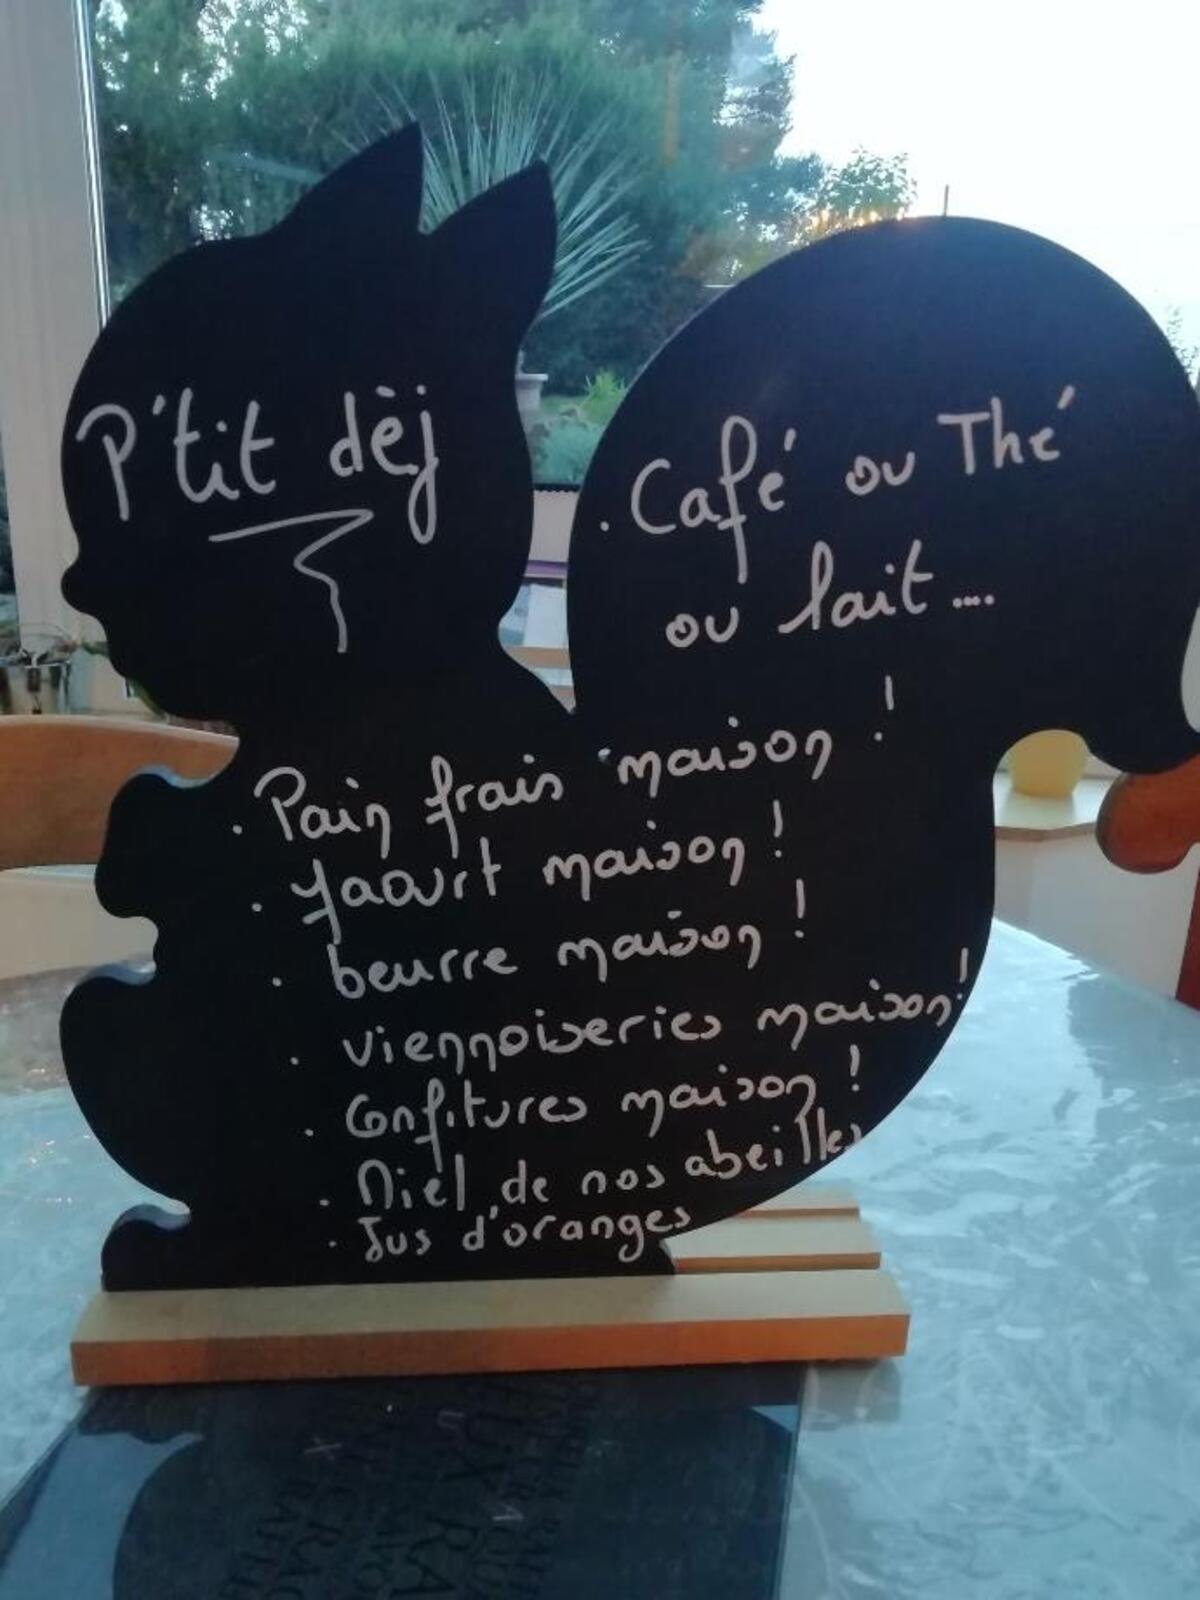 P'tit dèj
. Café ou Thé
ou lait ....
. Pain frais maison !
. Yaourt maison !
. beurre maison !
. viennoiseries maison !
. Confitures maison !
. Miel de nos abeilles
. Jus d'oranges